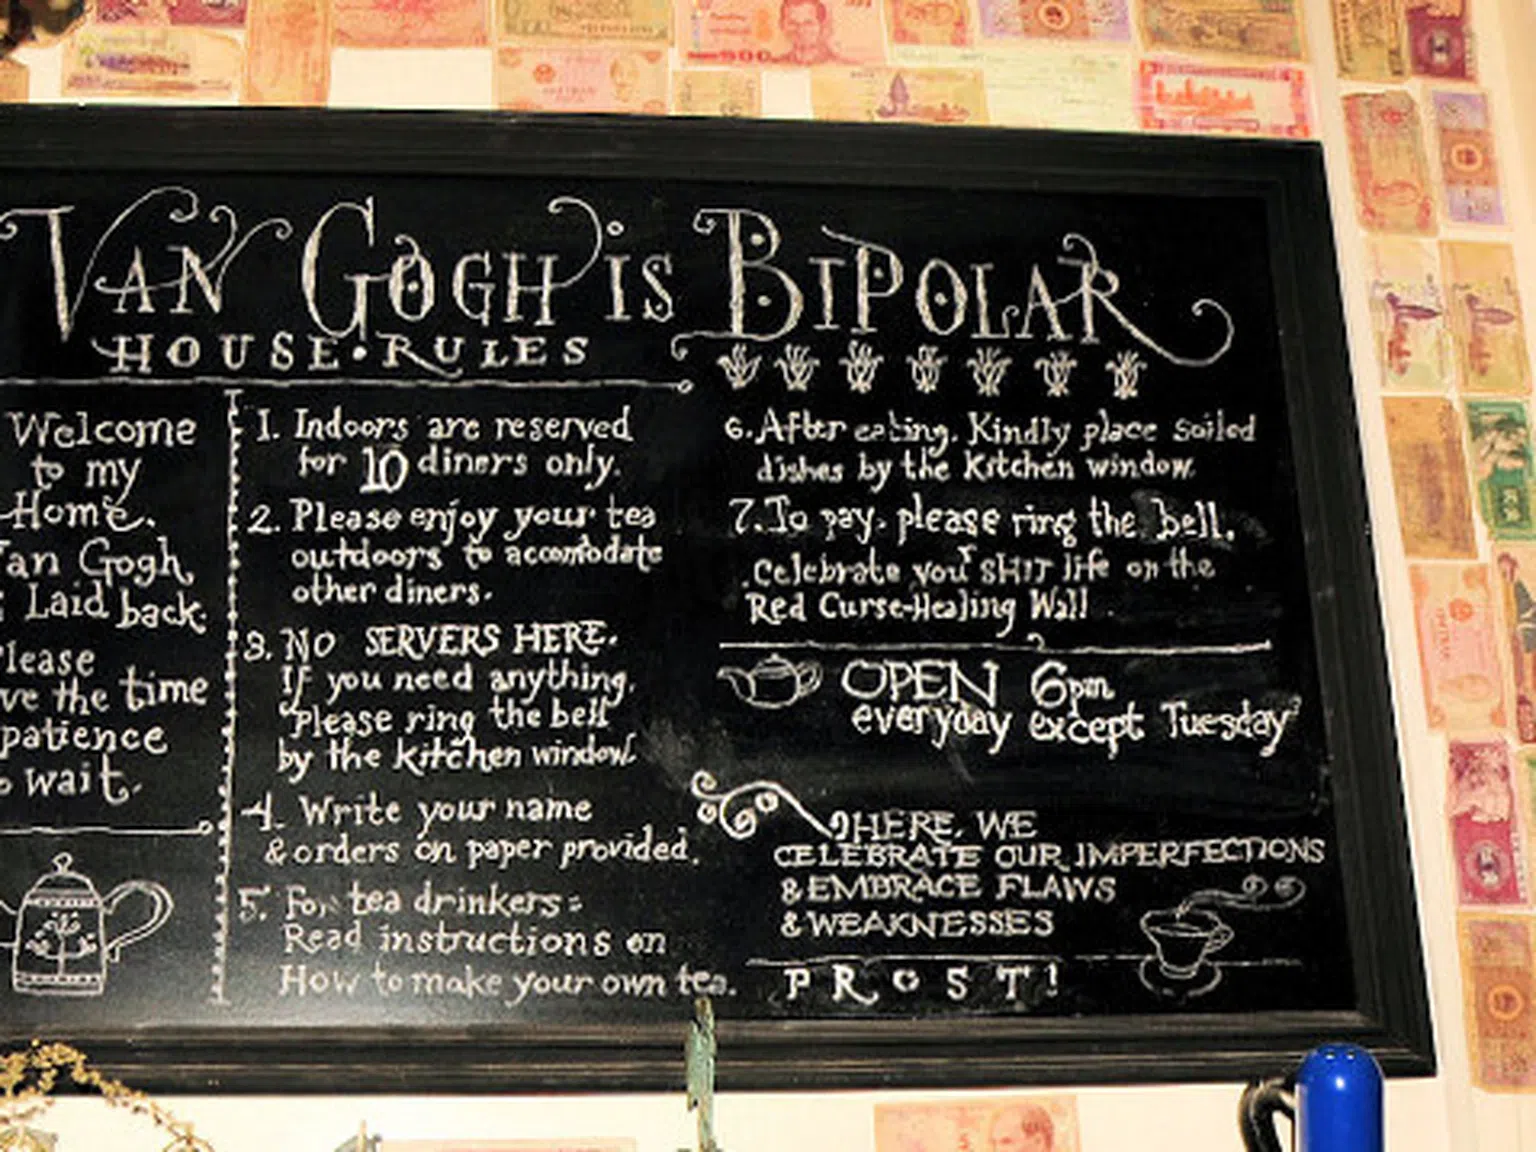 VAN GOGH IS BIPOLAR
HOUSE • RULES
Welcome
to my
Home.
Van Gogh
Laid back.
Please
the time
patience
wait.
1. Indoors are reserved
for 10 diners only.
2. Please enjoy your tea
outdoors to accomodate
other diners.
3. NO SERVERS HERE.
If you need anything,
Please ring the bell
by the kitchen window.
4. Write your name
& orders on paper provided.
5. For tea drinkers:
Read instructions on
How to make your own tea.
6. After eating, Kindly place soiled
dishes by the kitchen window.
7. To pay, please ring the bell.
Celebrate your SHIT life on the
Red Curse-Healing Wall
OPEN 6pm
everyday except Tuesday
HERE, WE
CELEBRATE OUR IMPERFECTIONS
& EMBRACE FLAWS
& WEAKNESSES
PROST!
500